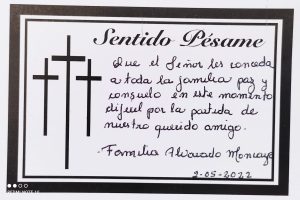 Sentido Pésame
Que el Señor les conceda
a toda la familia paz y
consuelo en este momento
difícil por la partida de
nuestro querido amigo.
-Familia Alvarado Moncayo
2-05-2022
REDMI NOTE 10